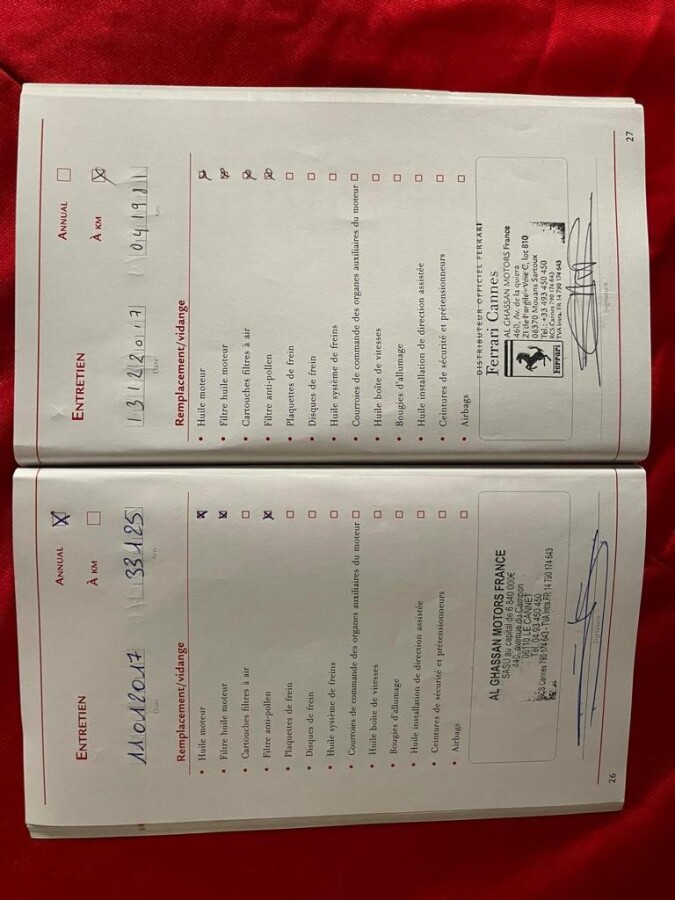 ENTRETIEN
ANNUAL
À KM
11012017
33125
Date
Km
Remplacement/vidange
• Huile moteur
• Filtre huile moteur
• Cartouches filtres à air
• Filtre anti-pollen
• Plaquettes de frein
• Disques de frein
• Huile système de freins
• Courroies de commande des organes auxiliaires du moteur
• Huile boîte de vitesses
• Bougies d'allumage
• Huile installation de direction assistée
• Ceintures de sécurité et prétensionneurs
• Airbags
AL GHASSAN MOTORS FRANCE
SASU au capital de 6 840 000€
440, avenue du Campon
06110 LE CANNET
Tél. 04 93 450 450
RCS Cannes 790 174 643 - TVA Intra.FR 14 790 174 643
Signature
26
ENTRETIEN
ANNUAL
À KM
Date
Km
Remplacement/vidange
• Huile moteur
• Filtre huile moteur
• Cartouches filtres à air
• Filtre anti-pollen
• Plaquettes de frein
• Disques de frein
• Huile système de freins
• Courroies de commande des organes auxiliaires du moteur
• Huile boîte de vitesses
• Bougies d'allumage
• Huile installation de direction assistée
• Ceintures de sécurité et prétensionneurs
• Airbags
DISTRIBUTEUR OFFICIEL FERRARI
Ferrari Cannes
AL GHASSAN MOTORS France
460, Av. de la quiera
ZI de l'argile-Voie C, lot 810
06370 Mouans Sartoux
Tel.: +33 493 450 450
RCS Cannes 790 174 643
TVA intra. FR 14 790 174 643
Ferrari
Signature
27